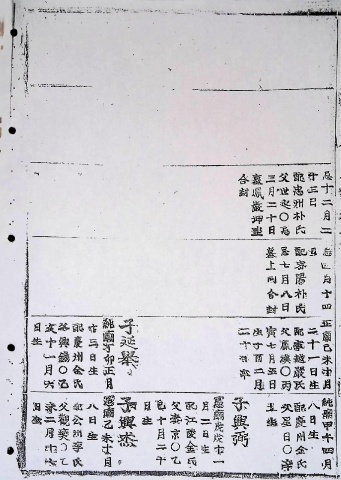 忌十二月二
十三日
配忠州朴氏
父世起○忌
三月二十日
墓鳳巖坪
合封
忌四月十四
日
配密陽朴氏
忌七月八日
墓上同合封
正廟己未十月
二十一日生
配寧越嚴氏
父基○丙
寅七月五日
生丁酉二月
二十
子延舉
純廟丁卯正月
廿三日生
配慶州金氏
父興○乙
亥十一月六
日生
純廟甲午四月
八日生
配慶州金氏
父星日○
生
子興弼
憲廟庚戌十一
月二日生
配江陵金氏
父榮京○乙
巳十月二十
日生
子興杰
憲廟己未十月
八日生
配公州李氏
父觀燮○乙
未二月十六
日生